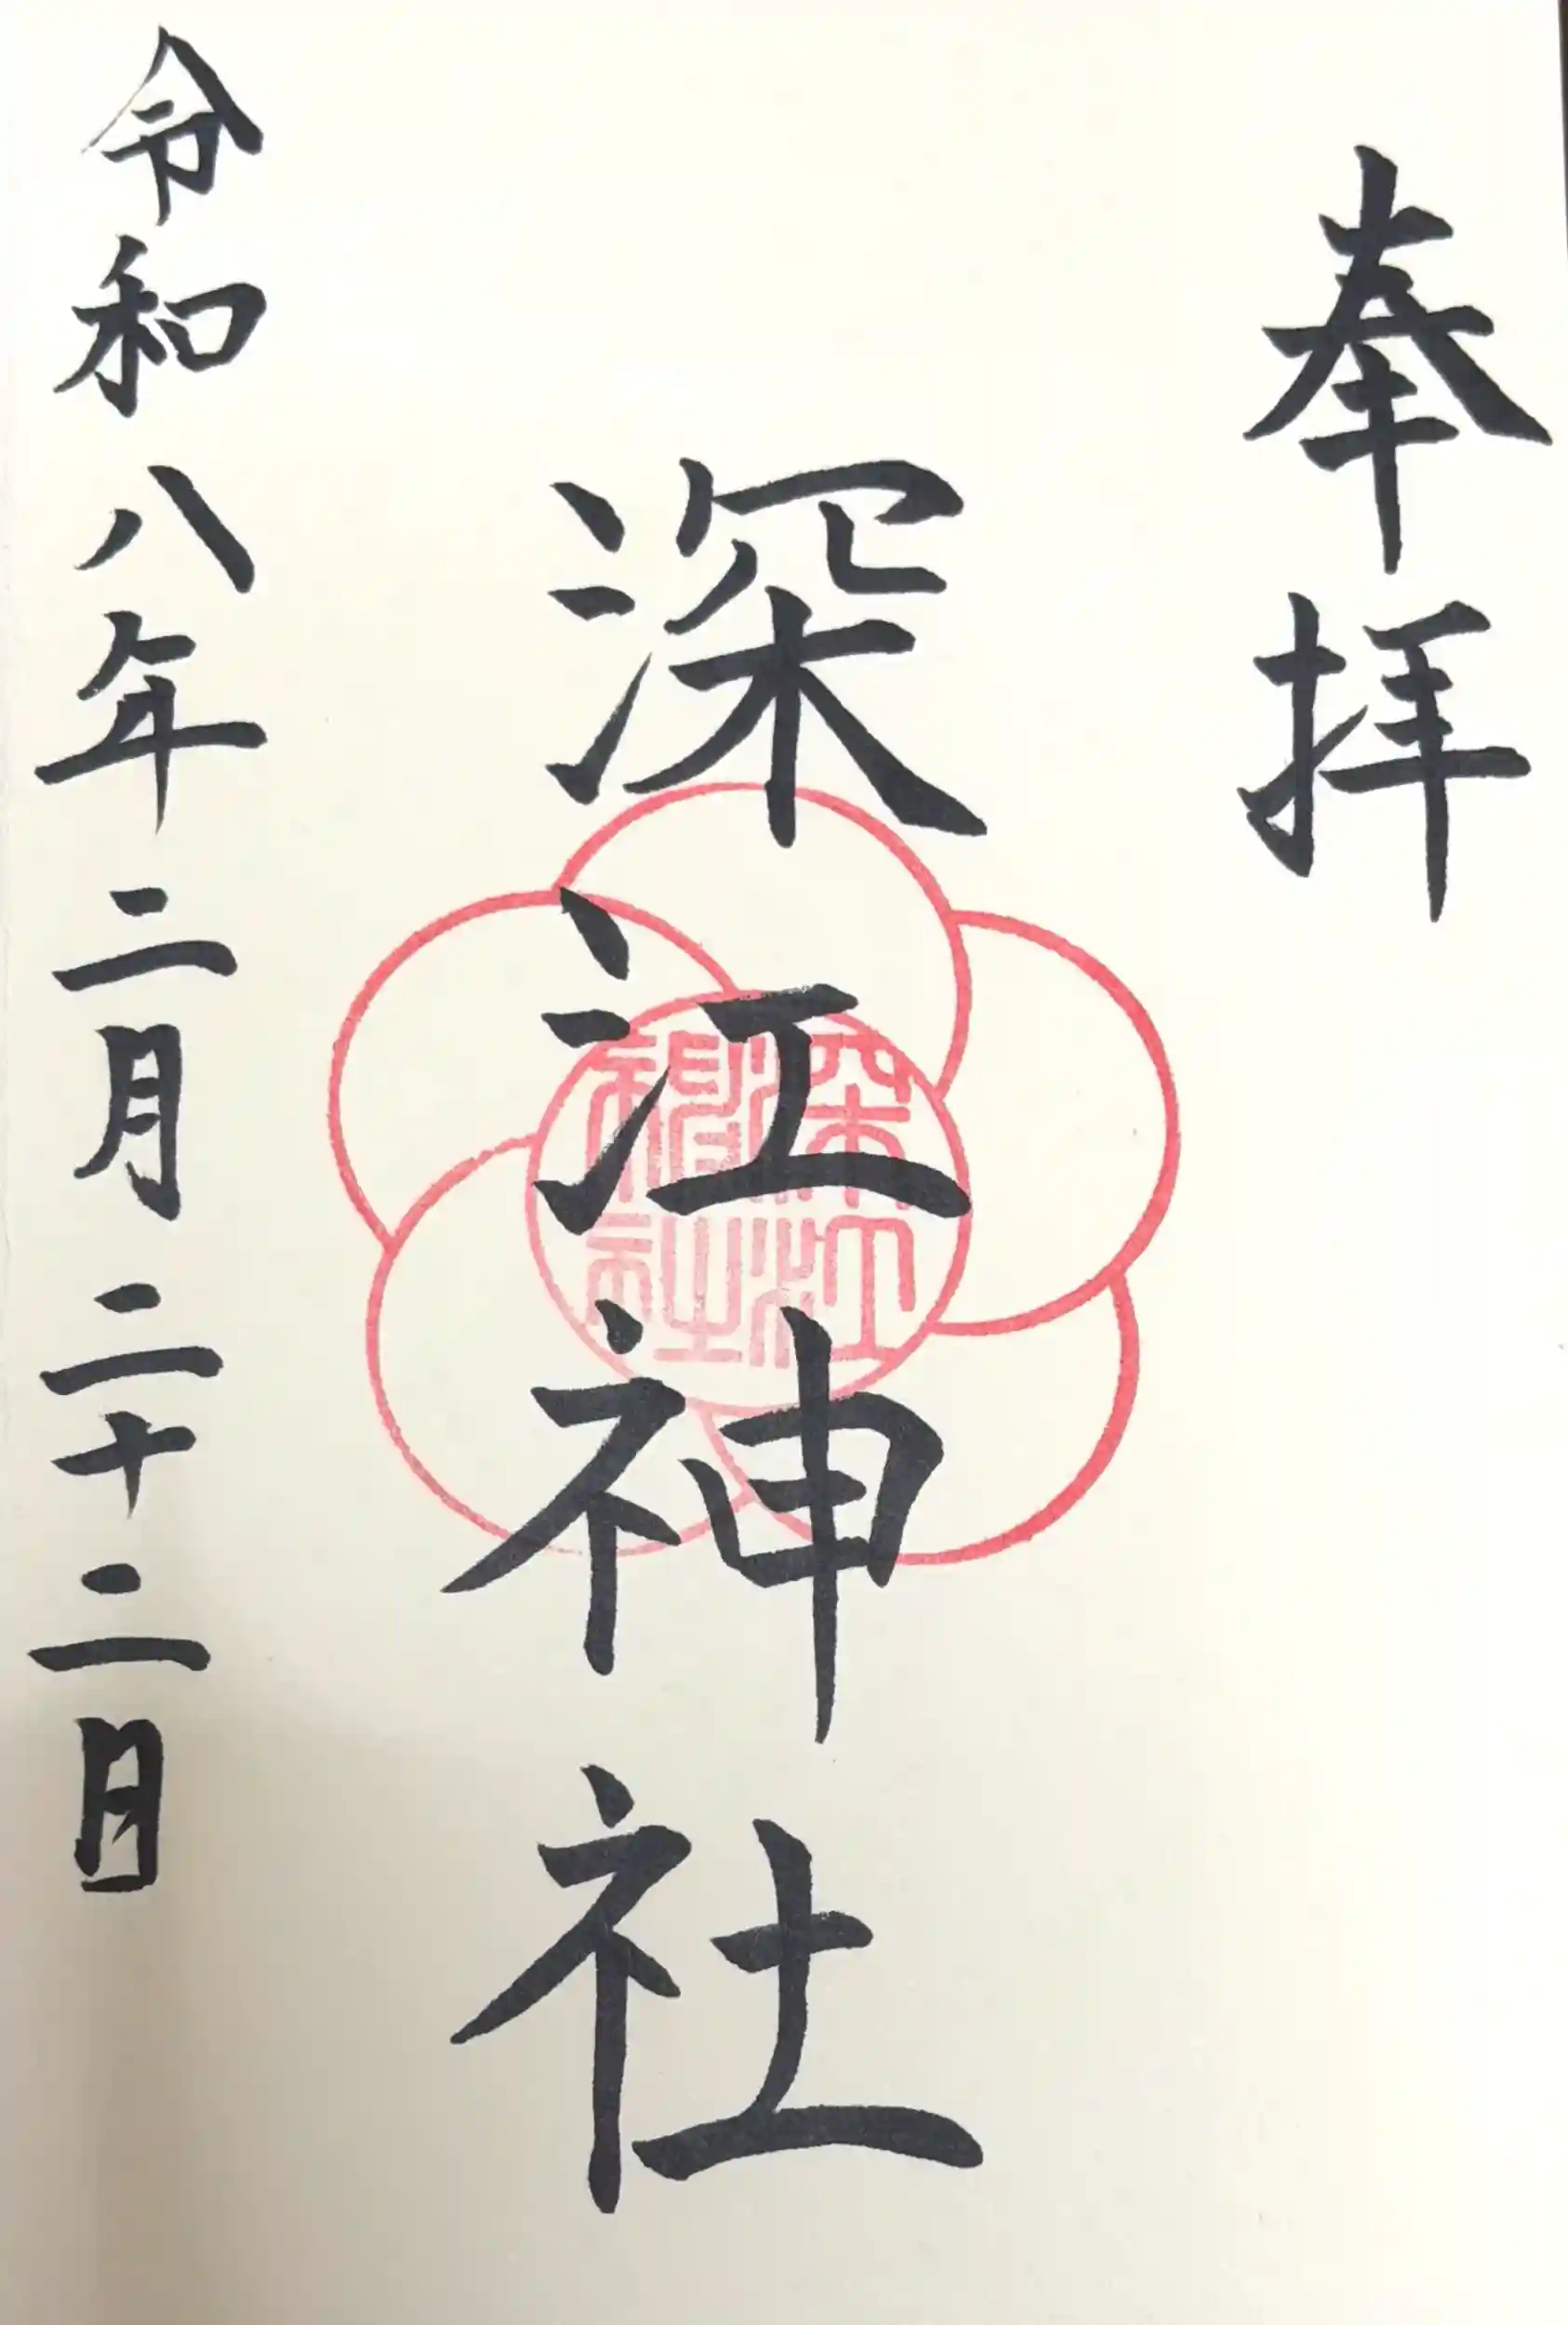 奉拝
深江神社
深江
神社
令和八年二月二十二日